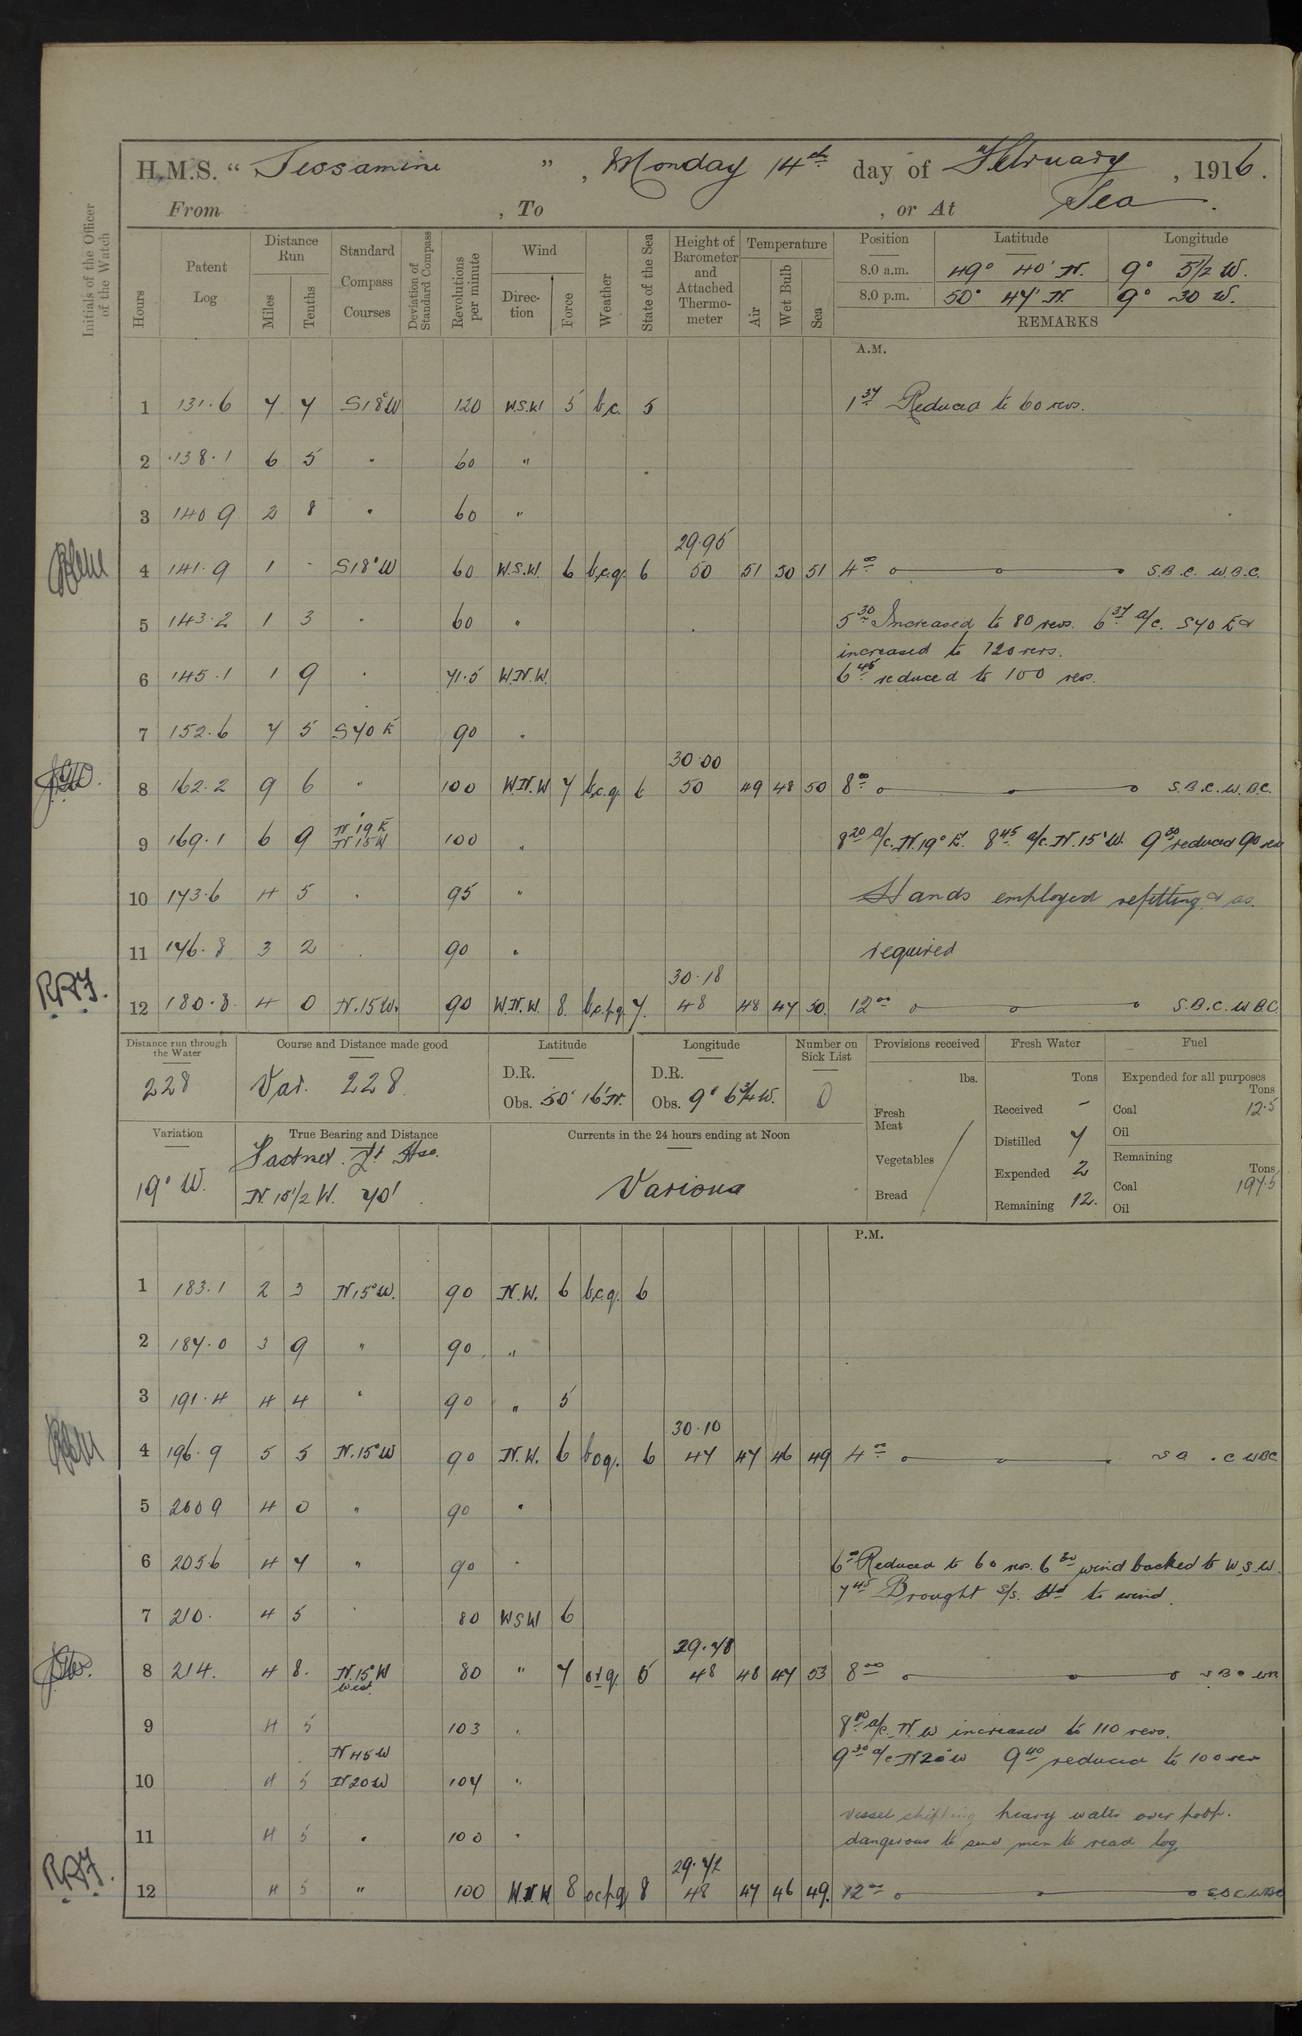 H.M.S. “ Jessamine ”, Monday 14th day of February, 1916.
From , To , or At Sea.
Initials of the Officer of the Watch
Hours
Patent Log
Distance Run
Miles
Tenths
Standard Compass Courses
Deviation of Standard Compass
Revolutions per minute
Wind
Direction
Force
Weather
State of the Sea
Height of Barometer and Attached Thermometer
Temperature
Air
Wet Bulb
Sea
Position Latitude Longitude
8.0 a.m. 49° 40' N. 9° 5½ W.
8.0 p.m. 50° 47' N. 9° 30 W.
REMARKS
A.M.
1 131.6 7 7 S18°W 120 W.S.W 5 b.c. 5 1 37 Reduced to 60 revs.
2 138.1 6 5 " 60 "
3 140 9 2 8 " 60 "
29.95
4 141.9 1 - S18°W 60 W.S.W. 6 b.c.q. 6 50 51 50 51 4 00 S.B.C. W.B.C.
5 143.2 1 3 " 60 " 5 30 Increased to 80 revs. 6 37 a/c. S70 E &
increased to 120 revs.
6 145.1 1 9 " 71.5 W.N.W. 6 45 reduced to 100 revs.
7 152.6 7 5 S70 E 90 "
30.00
8 162.2 9 6 " 100 W.N.W 7 b.c.q. 6 50 49 48 50 8 00 S.B.C. W.B.C.
N 19 E
9 169.1 6 9 N 15 W 100 " 8 20 a/c. N.19° E. 8 45 a/c. N.15°W. 9 30 reduced 90 rev
10 173.6 4 5 " 95 " Hands employed refitting & as.
11 176.8 3 2 " 90 " required
30.18
12 180.8. 4 0 N.15W. 90 W.N.W. 8. b.c.p.q 7. 48 48 47 50. 12 00 S.B.C. W.B.C.
R.R.J.
Distance run through the Water
228
Course and Distance made good
Var. 228
Latitude
D.R.
Obs. 50° 16' N.
Longitude
D.R.
Obs. 9° 6¾ W.
Number on Sick List
0
Provisions received
lbs.
Fresh Meat
Vegetables
Bread
Fresh Water
Tons
Received -
Distilled 7
Expended 2
Remaining 12.
Fuel
Expended for all purposes
Tons
Coal 12.5
Oil
Remaining
Tons
Coal 197.5
Oil
Variation
19° W.
True Bearing and Distance
Fastnet Lt Hse.
N. 15½ W. 70'
Currents in the 24 hours ending at Noon
Various
P.M.
1 183.1 2 3 N15°W. 90 N.W. 6 b.c.q. 6
2 187.0 3 9 " 90 "
3 191.4 4 4 " 90 " 5
30.10
4 196.9 5 5 N.15°W 90 N.W. 6 b o q. 6 47 47 46 49 4 00
5 200 9 4 0 " 90 "
6 205 6 4 7 " 90 " 6 00 Reduced to 60 revs. 6 30 wind backed to W.S.W.
7 45 Brought S/S. Hd to wind.
7 210. 4 5 " 80 WSW 6
29.78
8 214. 4 8. N.15°W 80 " 7 o.r.q. 5 48 48 47 53 8 00
West
9 4 5 103 " 8 10 a/c. N.W increased to 110 revs.
N 45 W 9 30 a/c N20°W 9 40 reduced to 100 rev
10 4 5 N20W 107 "
Vessel shipping heavy water over poop.
11 4 5 " 100 " dangerous to send men to read log
29.72
12 4 5 " 100 W.N.W 8 o c p q 8 48 47 46 49. 12 00 S.B.C.W.B.C
R.R.J.